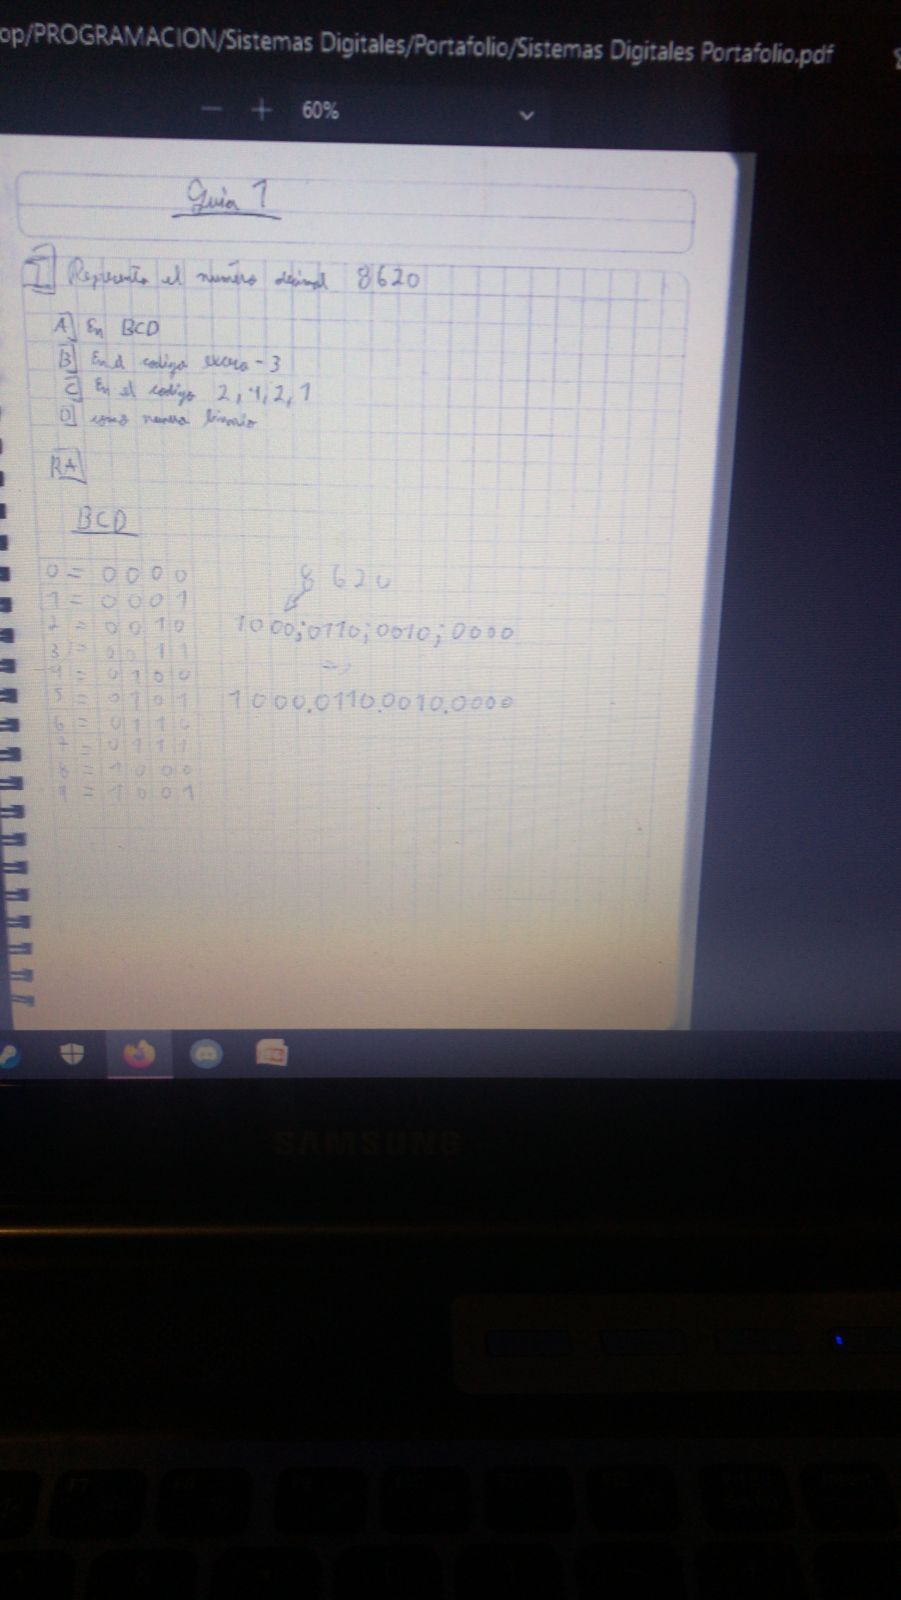 op/PROGRAMACION/Sistemas Digitales/Portafolio/Sistemas Digitales Portafolio.pdf
60%
Guia 1
I Represente el numero decimal 8620
A] En BCD
B] En el codigo exceso-3
C] En el codigo 2,4,2,1
D] como numero binario
RA]
BCD
0 = 0000
1 = 0001
2 = 0010
3 = 0011
4 = 0100
5 = 0101
6 = 0110
7 = 0111
8 = 1000
9 = 1001
8620
1000;0110;0010;0000
=>
1000.0110.0010.0000
SAMSUNG